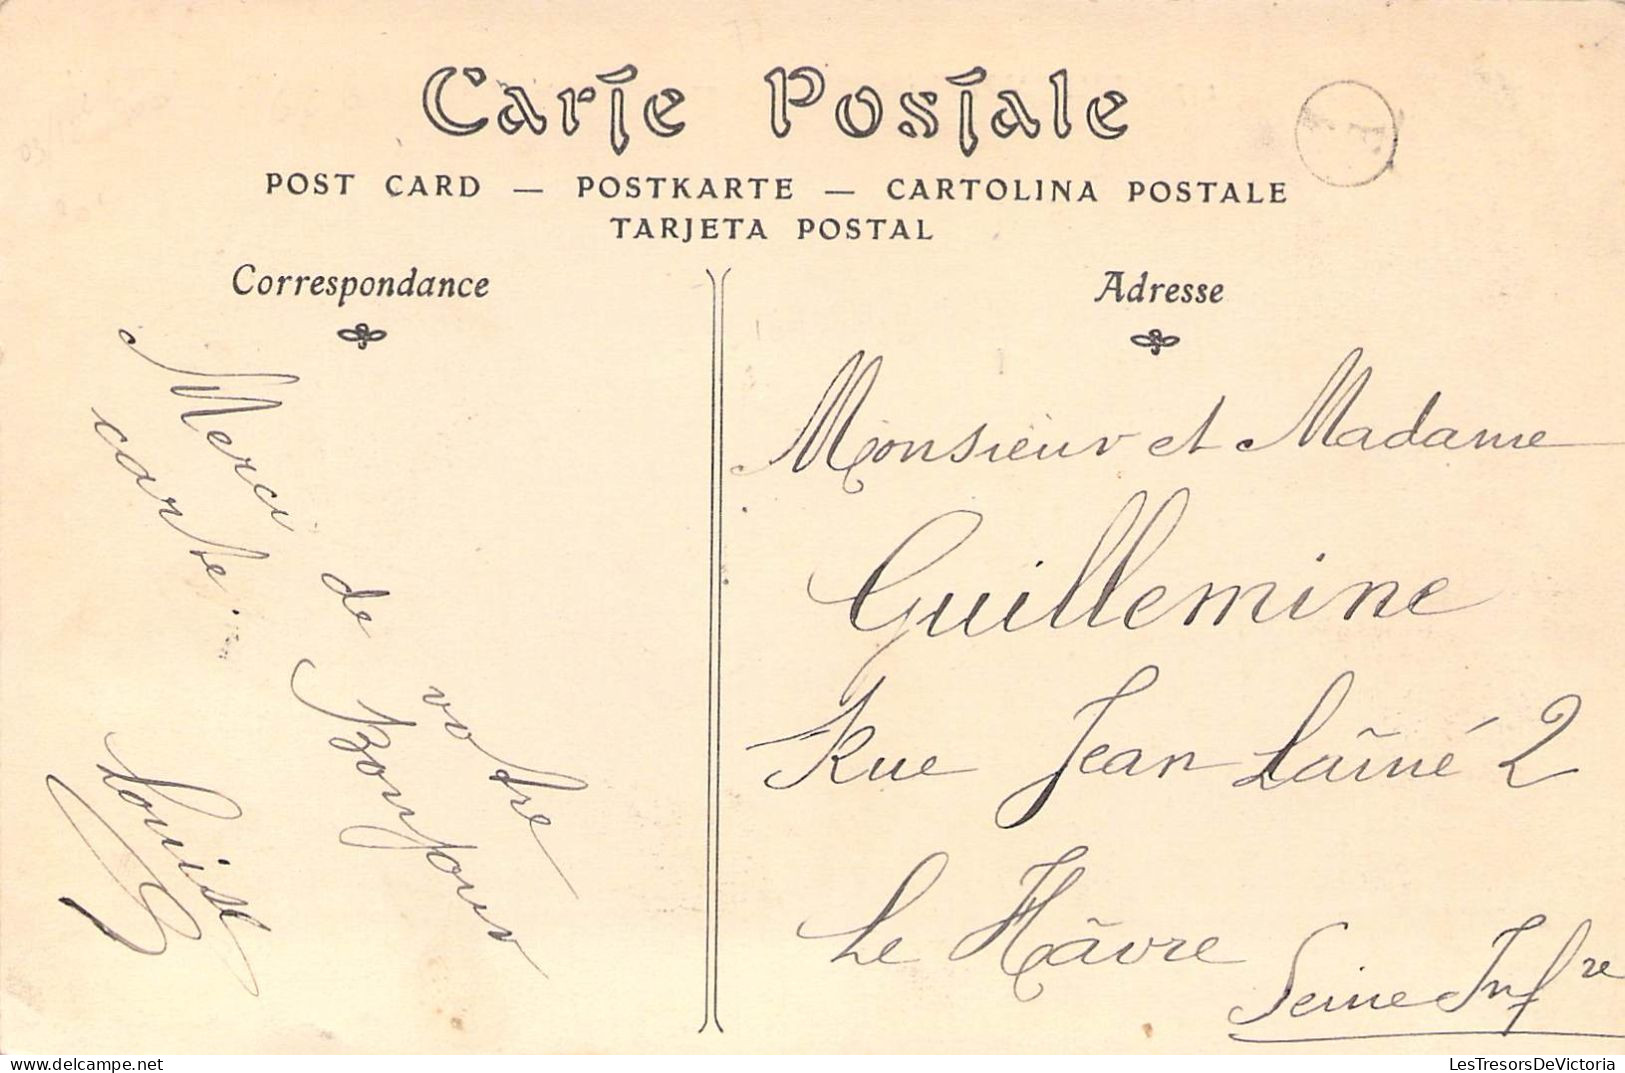 Carte Postale
POST CARD — POSTKARTE — CARTOLINA POSTALE
TARJETA POSTAL
Correspondance
Adresse
Merci de votre
carte. Bonjour
Louise
Monsieur et Madame
Guillemine
Rue Jean Lainé 2
Le Hâvre
Seine Infre
LesTresorsDeVictoria